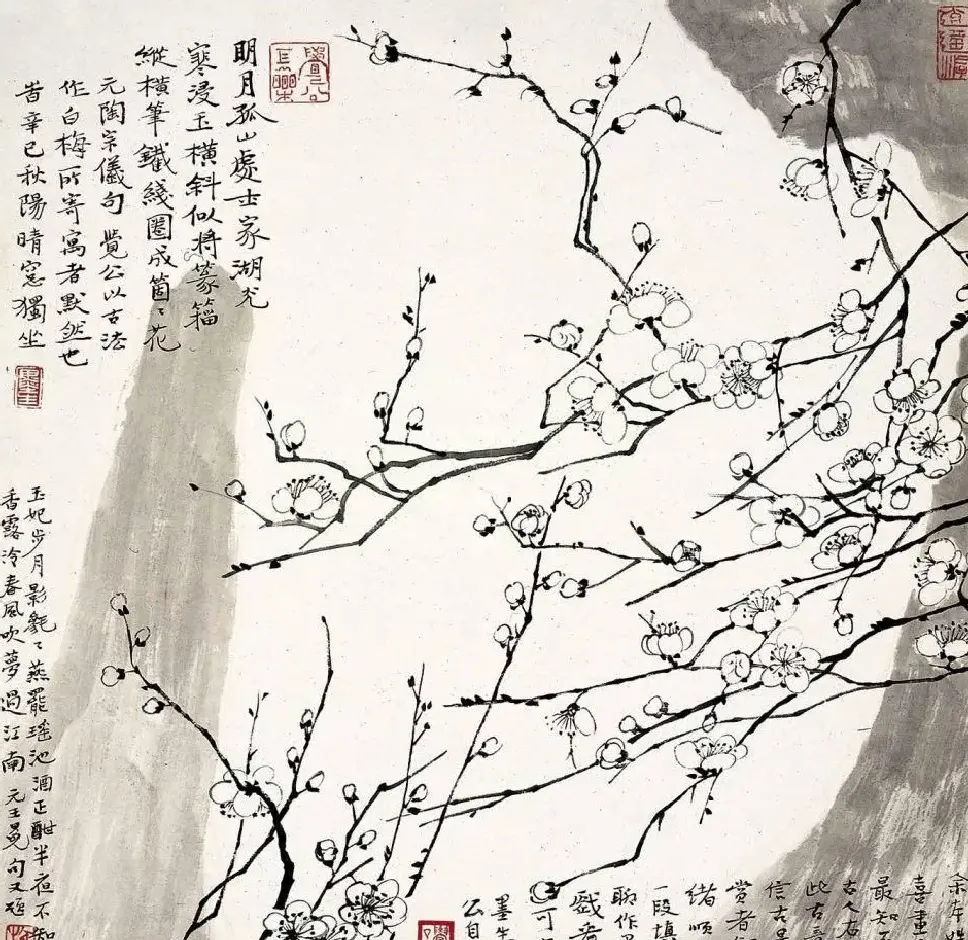 明月孤山處士家湖光
寒浸玉橫斜似將篆籀
縱橫筆鐵綫圈成箇〻花
元陶宗儀句覺公以古法
作白梅所寄寓者默然也
昔辛巳秋陽晴窓獨坐
玉妃步月影毿〻燕罷瑤池酒正酣半夜不知
香露冷春風吹夢過江南 元王冕句又題
余本
喜
最知
古人
此古
信古
賞者
緒順
一段
聊作
戲
可
墨
公自